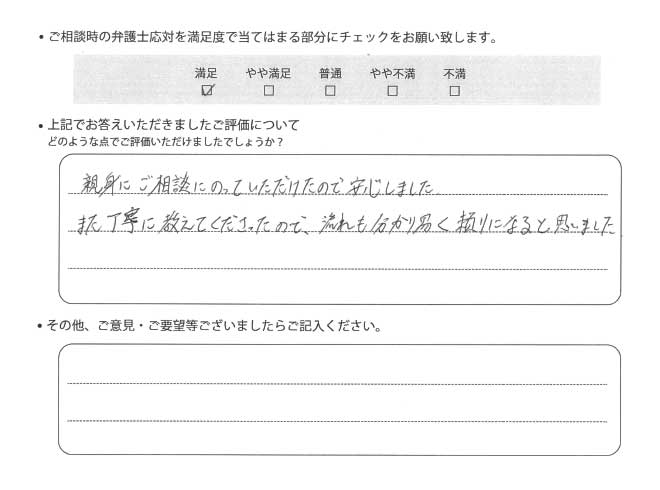 • ご相談時の弁護士応対を満足度で当てはまる部分にチェックをお願い致します。
満足 やや満足 普通 やや不満 不満
☑ □ □ □ □
• 上記でお答えいただきましたご評価について
どのような点でご評価いただけましたでしょうか？
親身にご相談にのっていただけたので安心しました
また丁寧に教えてくださったので、流れも分かり易く頼りになると思いました
• その他、ご意見・ご要望等ございましたらご記入ください。